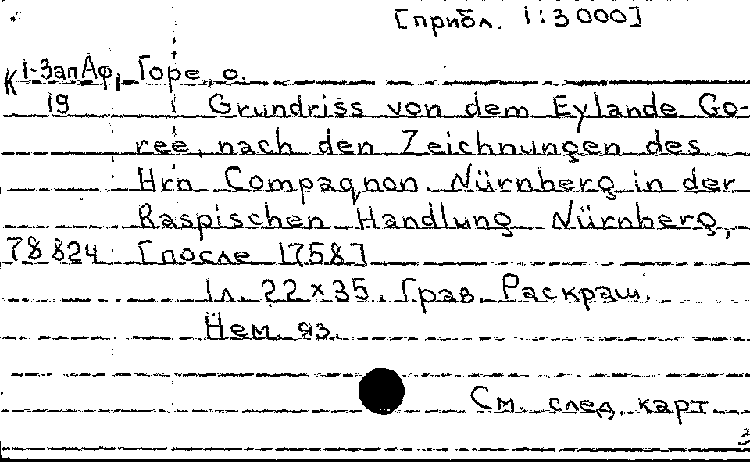 [прибл. 1:3000]
К 1-ЗапАф, Горе, о.
19 Grundriss von dem Eylande Go-
ree, nach den Zeichnungen des
Hrn Compagnon. Nürnberg in der
Raspischen Handlung Nürnberg,
78824 [после 1758]
1 л. 22 x 35. Грав. Раскраш.
Нем. яз.
См. след. карт.